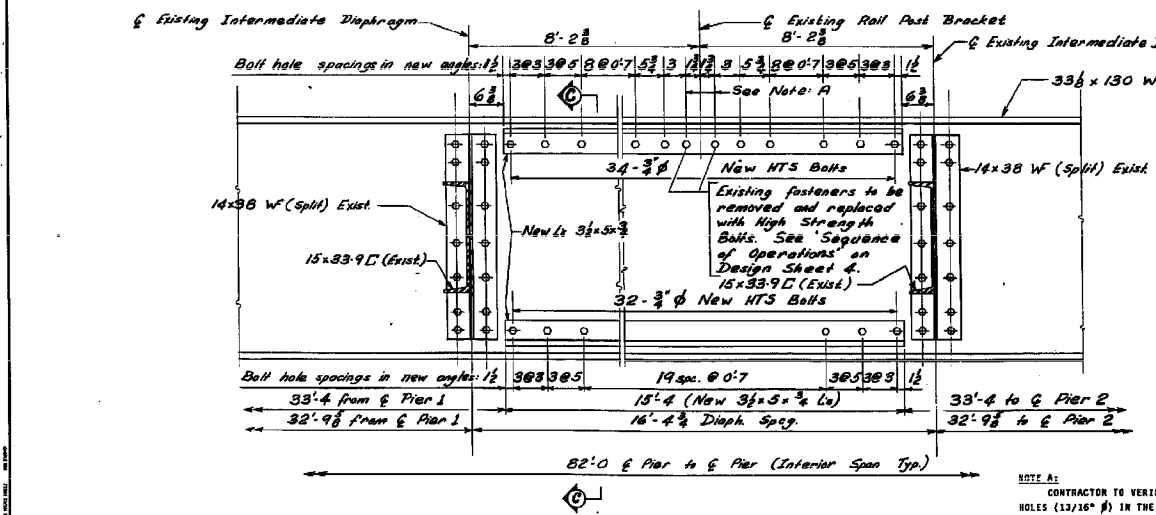 ℄ Existing Intermediate Diaphragm
℄ Existing Rail Post Bracket
8'-2 3/8
8'-2 3/8
℄ Existing Intermediate
Bolt hole spacings in new angles: 1½ 3@3 3@5 8@0'-7 5¾ 3 3 5¾ 8@0'-7 3@5 3@3 1½
6 3/8
C
See Note: A
6 3/8
33⅛ x 130 W
34-¾"φ New HTS Bolts
14x38 WF (Split) Exist.
14x38 WF (Split) Exist.
New Ls 3½x5x¾
Existing fasteners to be
removed and replaced
with High Strength
Bolts. See 'Sequence
of Operations' on
Design Sheet 4.
15x33.9 [ (Exist.)
15x33.9 [ (Exist.)
32-¾"φ New HTS Bolts
Bolt hole spacings in new angles: 1½ 3@3 3@5 19 spc. @ 0'-7 3@5 3@3 1½
33'-4 from ℄ Pier 1
15'-4 (New 3½x5x¾ Ls)
33'-4 to ℄ Pier 2
32'-9⅝ from ℄ Pier 1
16'-4¾ Diaph. Spcg.
32'-9⅝ to ℄ Pier 2
82'-0 ℄ Pier to ℄ Pier (Interior Span Typ.)
C
NOTE A:
CONTRACTOR TO VERI
HOLES (13/16" φ) IN THE